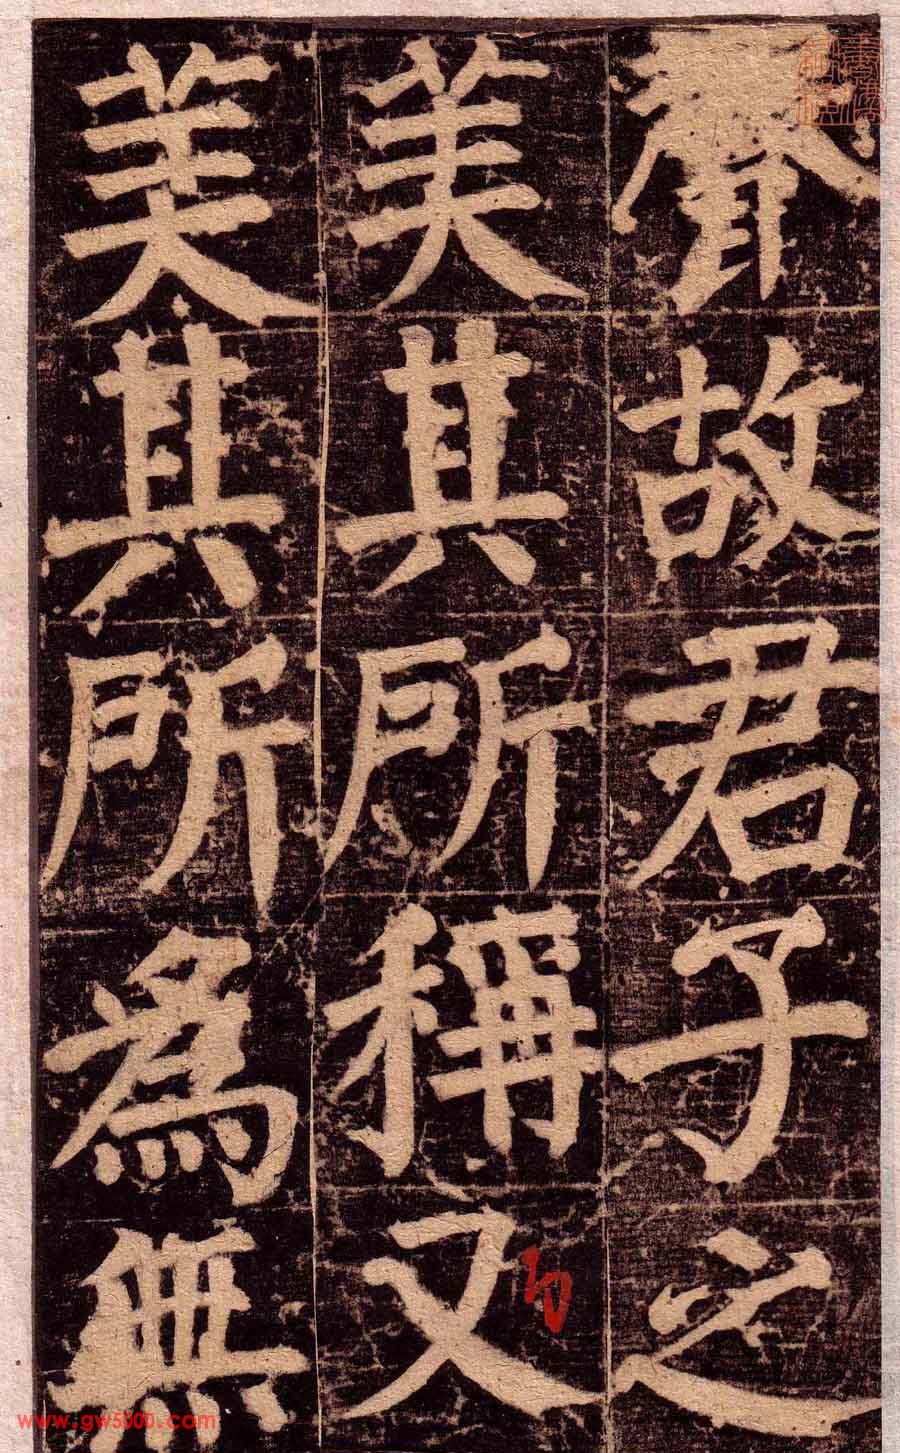 故君子之
美其所稱又
美其所為無
www.gw5000.com